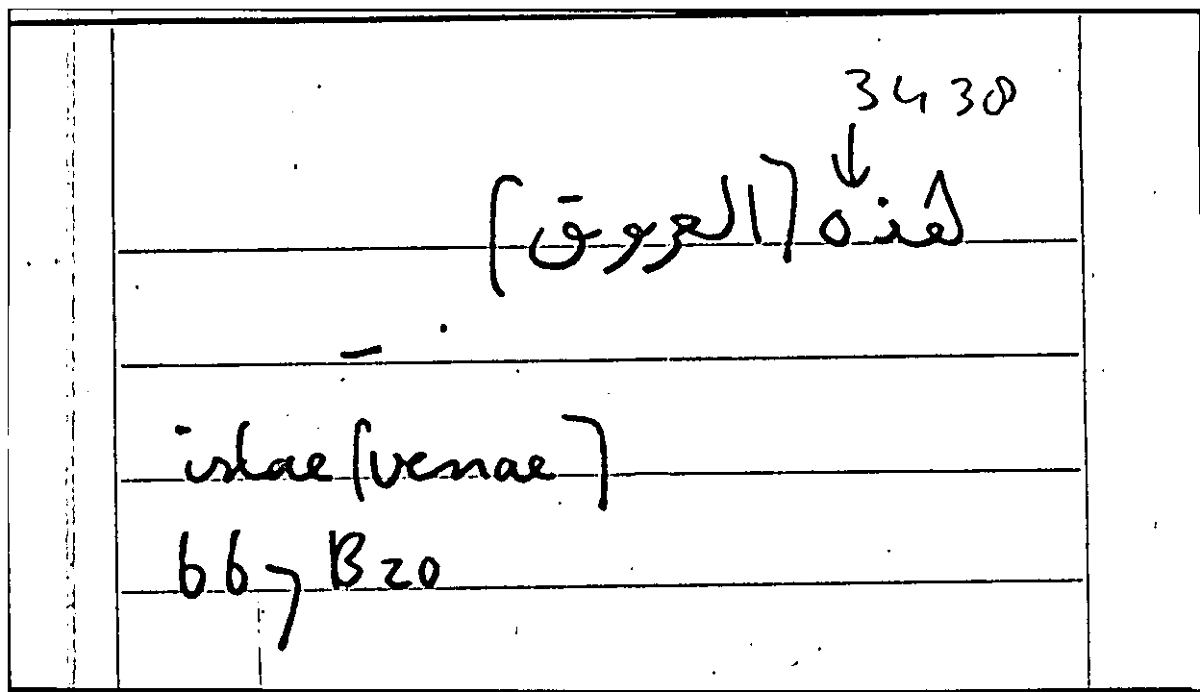 3430
↓
هذه [العروق]
—
istae [venae]
66, B20